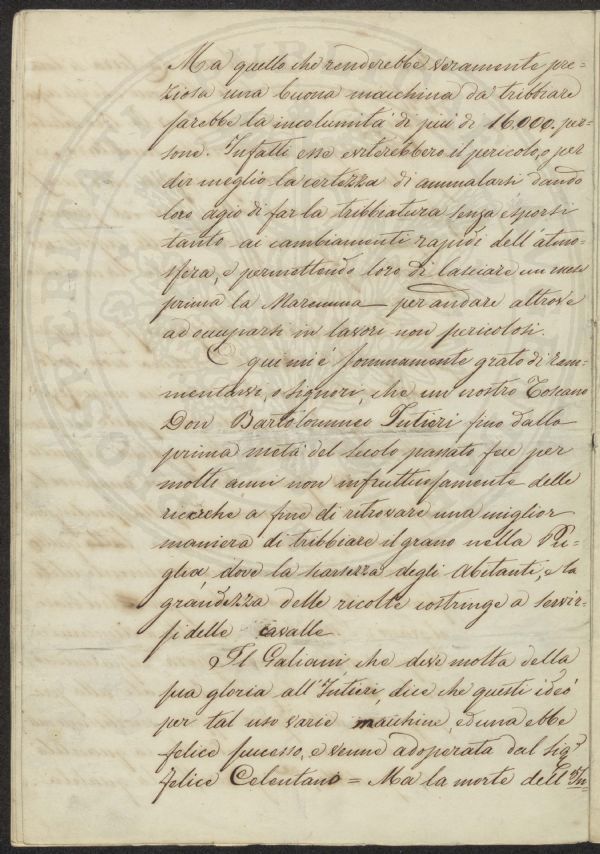 Ma quello che renderebbe veramente pre=
ziosa una buona macchina da tribbiare
sarebbe la incolumità di più di 16000. per=
sone. Infatti esse eviterebbero il pericolo, o per
dir meglio la certezza di ammalarsi dando
loro agio di far la tribbiatura senza esporsi
tanto ai cambiamenti rapidi dell'atmo=
sfera, e permettendo loro di lasciare un mese
prima la Maremma per andare altrove
ad occuparsi in lavori non pericolosi.
E qui mi è sommamente grato di ram=
mentarvi, o Signori, che un nostro Toscano
Don Bartolommeo Intieri fino dalla
prima metà del secolo passato fece per
molti anni non infruttuosamente delle
ricerche a fine di ritrovare una miglior
maniera di tribbiare il grano nella Pu=
glia, dove la scarsezza degli Abitanti, e la
grandezza delle ricolte costringe a servir=
si delle cavalle
Il Galiani che deve molta della
sua gloria all'Intieri, dice che questi ideò
per tal uso varie macchine, ed una ebbe
felice successo, e venne adoperata dal Sig.r
Felice Celentano = Ma la morte dell'In=